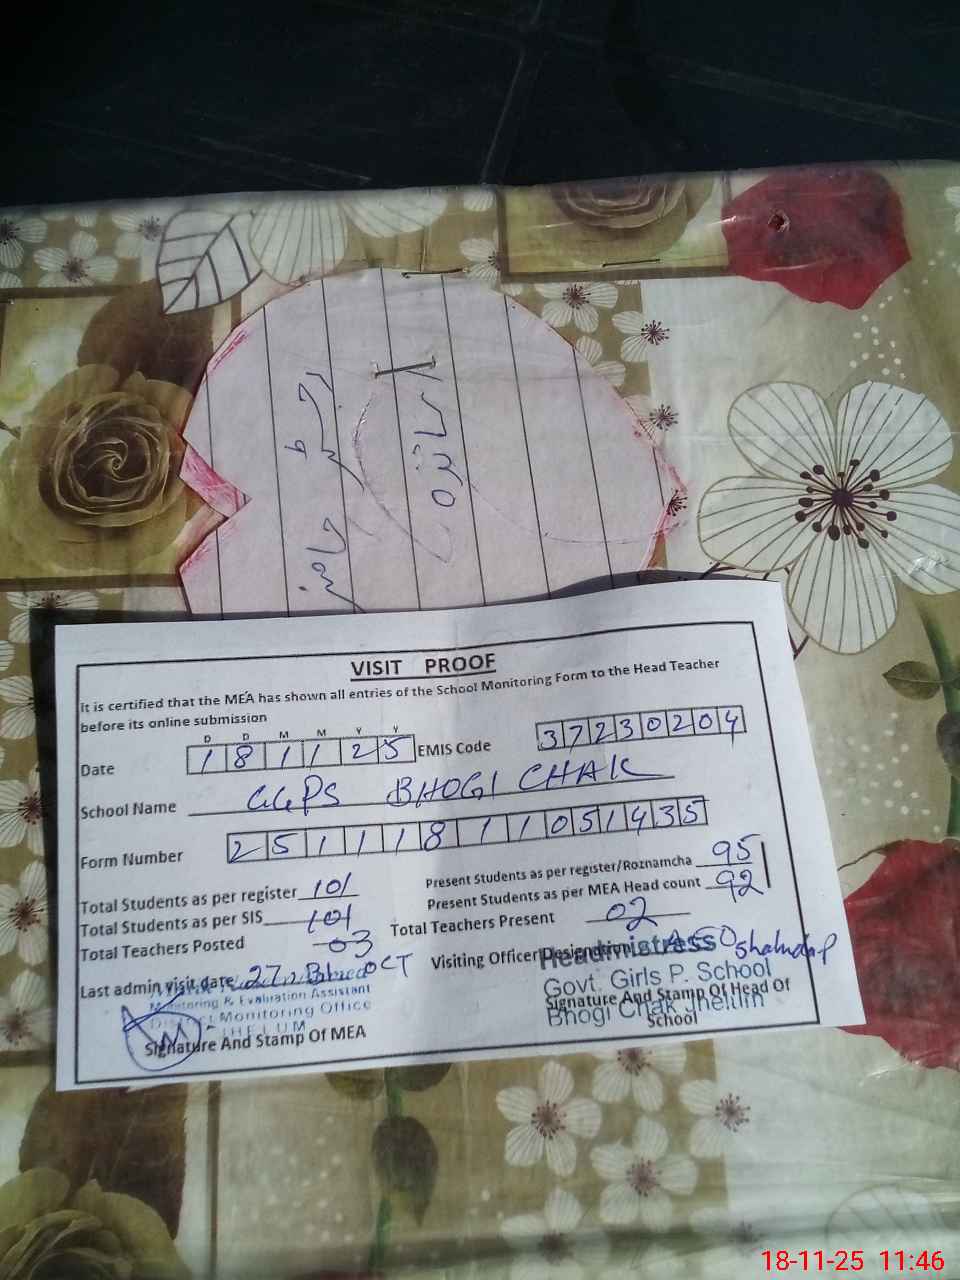 حاضری
رجسٹر
اساتذہ
VISIT PROOF
It is certified that the MEA has shown all entries of the School Monitoring Form to the Head Teacher
before its online submission
D D M M Y Y
Date 181125 EMIS Code 37230204
School Name GGPS BHOGI CHAK
Form Number 25111811051435
Total Students as per register 101 Present Students as per register/Roznamcha 95
Total Students as per SIS 101 Present Students as per MEA Head count 92
Total Teachers Posted 03 Total Teachers Present 02
Last admin visit date 27 OCT Visiting Officer Designation AEO
Monitoring & Evaluation Assistant
District Monitoring Office
JHELUM
Signature And Stamp Of MEA
Headmistress
Govt. Girls P. School
Bhogi Chak Jhelum
Signature And Stamp Of Head Of
School
18-11-25 11:46